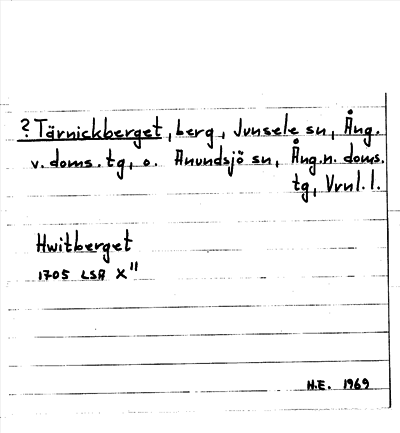 ? Tärnickberget, berg, Junsele sn, Ång.
v. doms. tg, o. Anundsjö sn, Ång. n. doms.
tg, Vrnl. l.
Hwitberget
1705 LSA X"
H.E. 1969